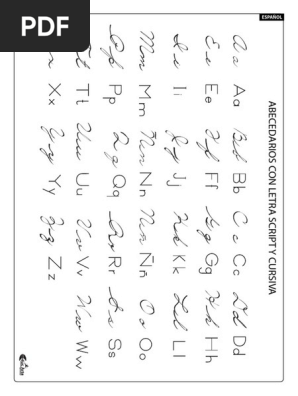 PDF
ESPAÑOL
ABECEDARIOS CON LETRA SCRIPT Y CURSIVA
Aa Aa Bb Bb Cc Cc Dd Dd
Ee Ee Ff Ff Gg Gg Hh Hh
Ii Ii Jj Jj Kk Kk Ll Ll
Mm Mm Nn Nn Ññ Ññ Oo Oo
Pp Pp Qq Qq Rr Rr Ss Ss
Tt Tt Uu Uu Vv Vv Ww Ww
x Xx Yy Yy Zz Zz